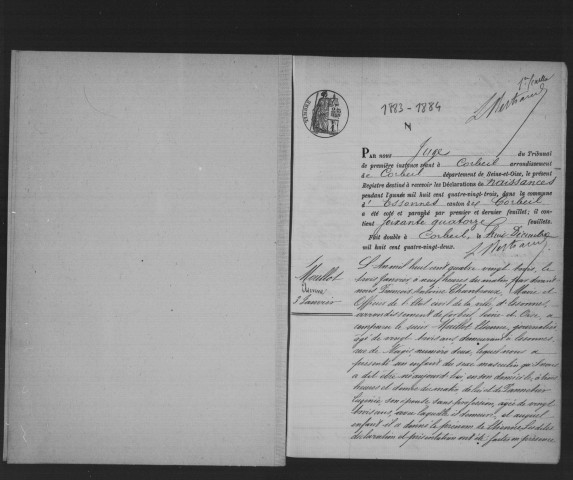 1er feuillet
L Bertrand
TIMBRE
1883-1884
N
PAR nous Juge du Tribunal
de première instance séant à Corbeil arrondissement
de Corbeil département de Seine-et-Oise, le présent
Registre destiné à recevoir les Déclarations de Naissances
pendant l'année mil huit cent quatre-vingt-trois, dans la commune
d'Essonnes canton de Corbeil
a été coté et paraphé par premier et dernier feuillet; il con-
tient soixante quatorze feuillets.
Fait double à Corbeil, le Décembre
mil huit cent quatre-vingt-deux.
L Bertrand
Meullot
Etienne
3 Janvier
L'an mil huit cent quatre vingt trois, le
trois janvier à neuf heures du matin, par devant
nous François Antoine Maire et
Officier de l'Etat civil de la ville d'Essonnes,
arrondissement de Corbeil, Seine et Oise, a
comparu le sieur Meullot Etienne, journalier,
âgé de vingt trois ans, demeurant à Essonnes,
rue de numéro deux, lequel nous a
présenté un enfant du sexe masculin qu'il nous
a dit être né aujourd'hui en son domicile, à trois
heures et demie du matin de lui et de
Eugénie, son épouse, sans profession, âgée de vingt
trois ans, avec laquelle il demeure, et auquel
enfant il a donné le prénom de Etienne. Lesdites
déclaration et présentation ont été faites en présence